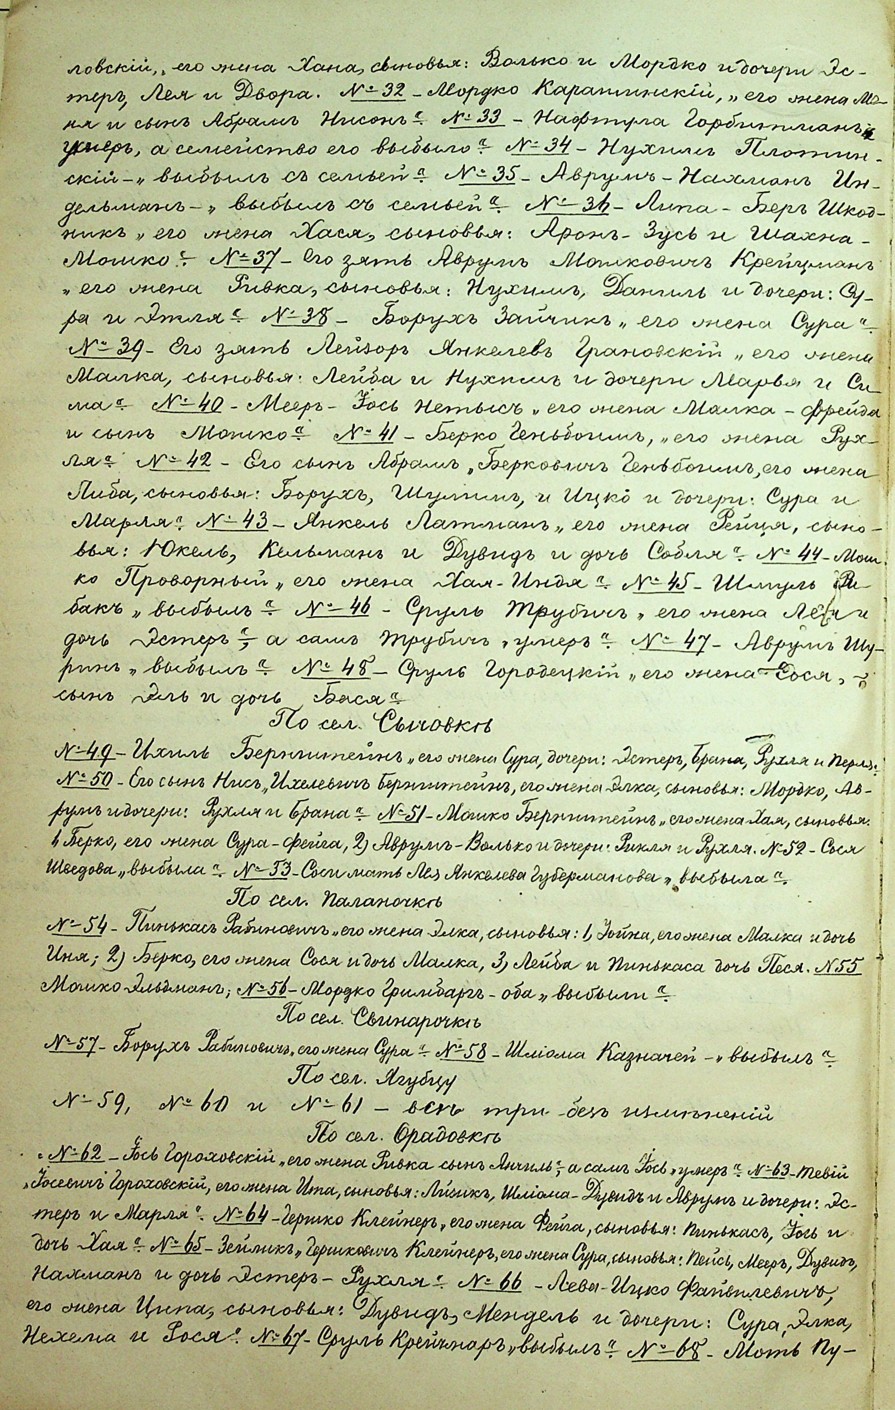 ловскій, „его жена Хана, сыновья: Волько и Мордко и дочери Эс-
теръ, Лея и Двора. № 32 – Мордко Карашинскій, „его жена Ма-
ня и сынъ Абрамъ Нисонъ“. № 33 – Нафтула Горбитманъ
умеръ, а семейство его выбыло“. № 34 – Нухимъ Плотин-
скій – „выбылъ съ семьей“. № 35 – Аврумъ – Нахманъ Ин-
дельманъ – „выбылъ съ семьей“. № 36 – Липа – Беръ Шкод-
никъ „его жена Хася, сыновья: Аронъ – Зусь и Шахна –
Мошко“. № 37 – Его зять Аврумъ Мошковичъ Крейцманъ
„его жена Ривка, сыновья: Нухимъ, Даниль и дочери: Су-
ра и Эткля“. № 38 – Борухъ Зайчикъ „его жена Сура“.
№ 39 – Его зять Лейзоръ Янкелевъ Грановскій „его жена
Малка, сыновья: Лейба и Нухимъ и дочери Марья и Си-
ма“. № 40 – Мееръ – Іось Нетысъ „его жена Малка – Фрейда
и сынъ Мошко“. № 41 – Берко Геньбомъ, „его жена Рух-
ля“. № 42 – Его сынъ Абрамъ „Берковичъ Геньбомъ, его жена
Либа, сыновья: Борухъ, Шулимъ, и Ицко и дочери: Сура и
Марля“. № 43 – Янкель Латманъ „его жена Рейця, сыно-
вья: Юкель, Кельманъ и Дувидъ и дочь Собля“. № 44 – Мош-
ко Проворный „его жена Хая – Индя“. № 45 – Шмуль Ри-
бакъ „выбылъ“. № 46 – Сруль Трубичъ „его жена Лея и
дочь Эстеръ“, а самъ Трубичъ „умеръ“. № 47 – Аврумъ Шу-
ринъ „выбылъ“. № 48 – Сруль Городецкій „его жена – Сося, –
сынъ Эль и дочь Бася“.
По сел. Сычовкѣ
№ 49 – Ихиль Бернштейнъ „его жена Сура, дочери: Эстеръ, Брана, Рухля и Перля.
№ 50 – Его сынъ Нисъ „Ихелевичъ Бернштейнъ, его жена Элка, сыновья: Мордко, Ав-
румъ и дочери: Рухля и Брана“. № 51 – Мошко Бернштейнъ „его жена Хая, сыновья:
1) Берко, его жена Сура – Фейга, 2) Аврумъ – Волько и дочери: Рикля и Рухля. № 52 – Сося
Шведова „выбыла“. № 53 – Соси мать Лея Янкелева Губерманова „выбыла“.
По сел. Паланочкѣ
№ 54 – Пинькасъ Рабиновичъ „его жена Элка, сыновья: 1) Іойна, его жена Малка и дочь
Иня; 2) Берко, его жена Сося и дочь Малка, 3) Лейба и Пинькаса дочь Песя. № 55
Мошко Эльдманъ; № 56 – Мордко Гримбаргъ – оба „выбыли“.
По сел. Свинарочкѣ
№ 57 – Борухъ Рабиновичъ „его жена Сура“. № 58 – Шліома Казначей – „выбылъ“.
По сел. Ягубцу
№ 59, № 60 и № 61 – всѣ три безъ измѣненій
По сел. Орадовкѣ
№ 62 – Іось Гороховскій „его жена Ривка сынъ Янчиль“, а самъ Іось „умеръ“. № 63 – Тевій
„Іосевичъ Гороховскій, его жена Ита, сыновья: Лизикъ, Шліома – Дувидъ и Аврумъ и дочери: Эс-
теръ и Марля“. № 64 – Гершко Клейнеръ „его жена Фейга, сыновья: Пинькасъ, Іось и
дочь Хая“. № 65 – Зейликъ „Гершковичъ Клейнеръ, его жена Сура, сыновья: Пейсъ, Мееръ, Дувидъ,
Нахманъ и дочь Эстеръ – Рухля“. № 66 – Лева – Ицко Файвилевичъ,
его жена Ципа, сыновья: Дувидъ, Мендель и дочери: Сура, Элка,
Нехема и Рося“. № 67 – Сруль Крейчмаръ „выбылъ“. № 68 – Моть Пу-